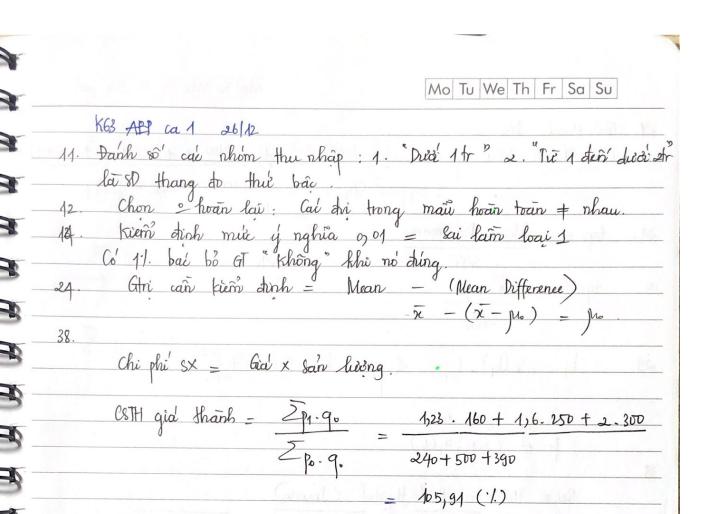 Mo Tu We Th Fr Sa Su
K63 AEP ca 1 26/12
11. Đánh số các nhóm thu nhập : 1. "Dưới 1 tr" 2. "Từ 1 đến dưới 2tr"
là SD thang đo thứ bậc.
12. Chọn 0 hoàn lại : Các đvị trong mẫu hoàn toàn ≠ nhau.
14. Kiểm định mức ý nghĩa 0,01 = Sai lầm loại 1
Có 1% bác bỏ GT "không" khi nó đúng.
24. Gtrị cần kiểm định = Mean - (Mean Difference)
x̄ - (x̄ - μ₀) = μ₀
38.
Chi phí SX = Giá x Sản lượng.
CSTH giá thành = Σp₁.q₀ / Σp₀.q₀ = 1,23 . 160 + 1,6 . 250 + 2 . 300 / 240 + 500 + 390
= 105,91 (%)